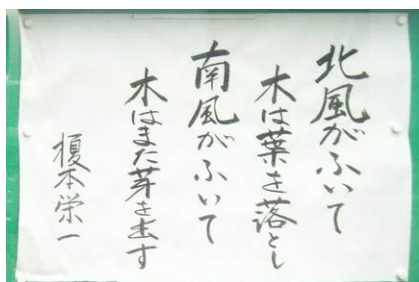 北風がふいて
木は葉を落とし
南風がふいて
木はまた芽を出す
榎本栄一